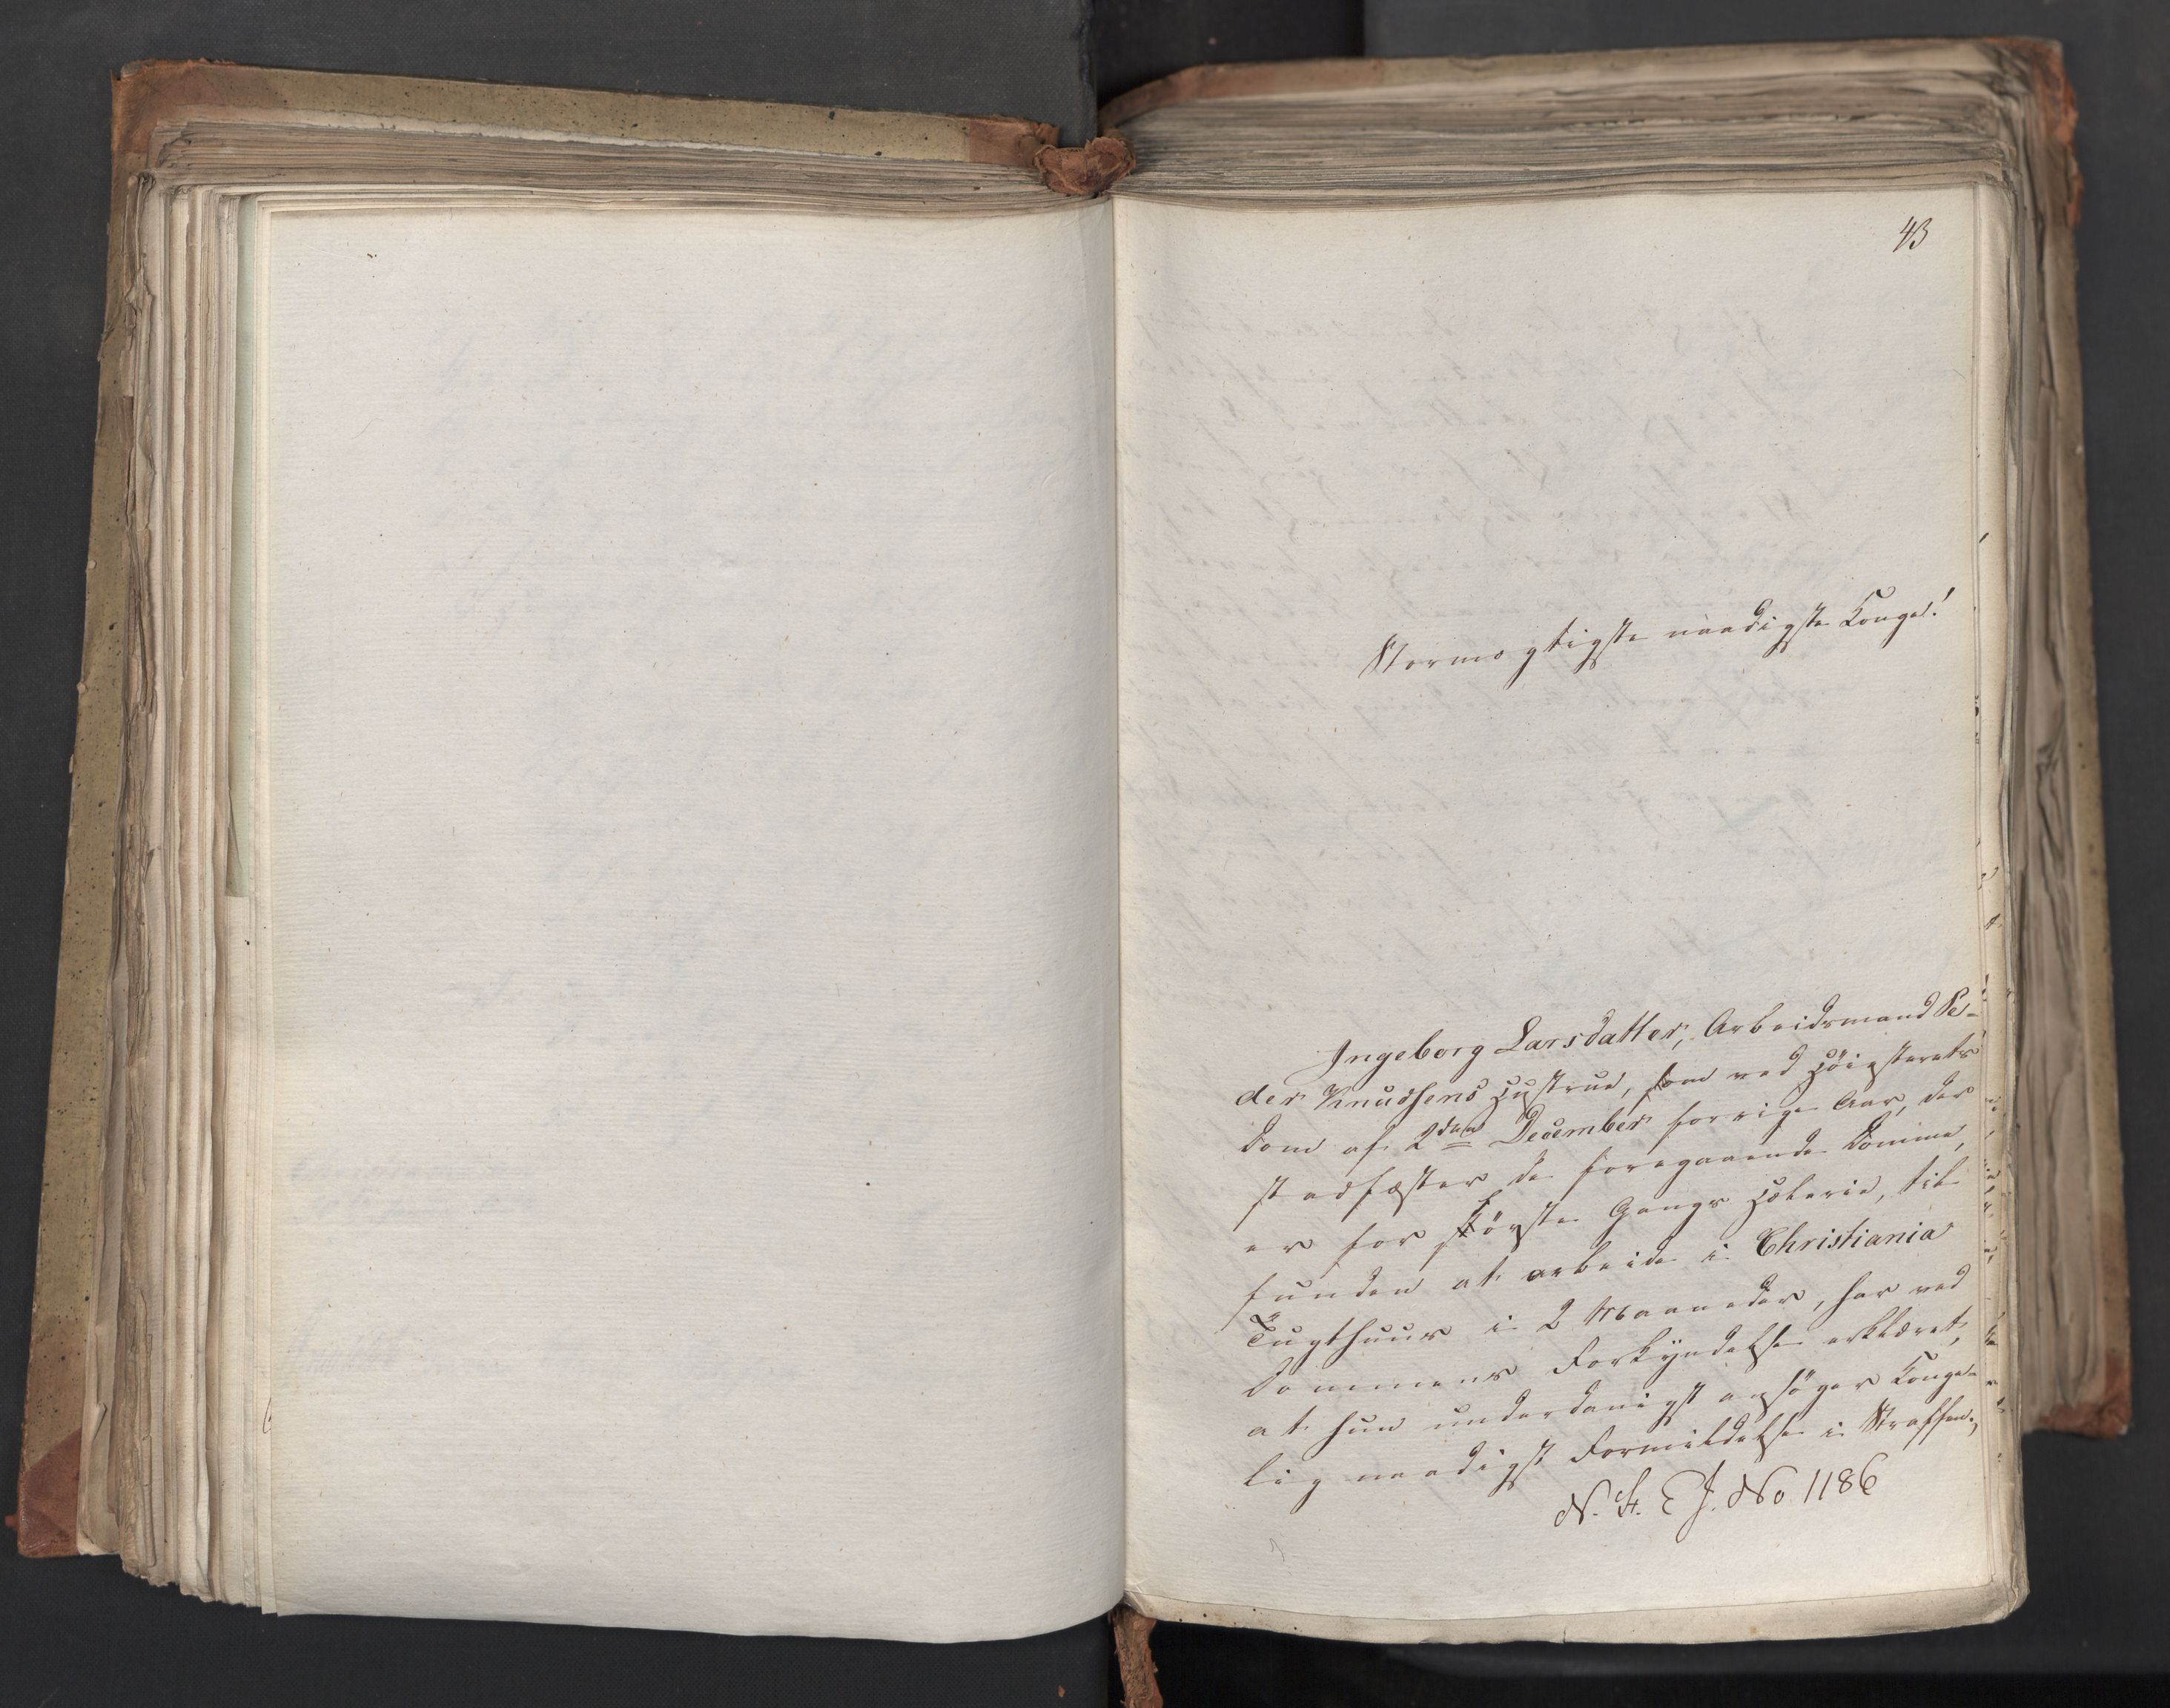 43
Stormægtigste naadigste Konge!
Ingeborg Larsdatter, Arbeidsmand Pe-
der Knudsens Hustrue, som ved Höiesterets
Dom af 2den December forrige Aar, der
stadfæster de foregaaende Domme,
er for förste Gangs Hæleric, til-
funden at arbeide i Christiania
Tugthuus i 2 Maaneder, har ved
Dommens Forkyndelse erklæret,
at hun underdanigst ansöger Konge-
lig naadigst Formildelse i Straffen.
N. St. E J. No 1186